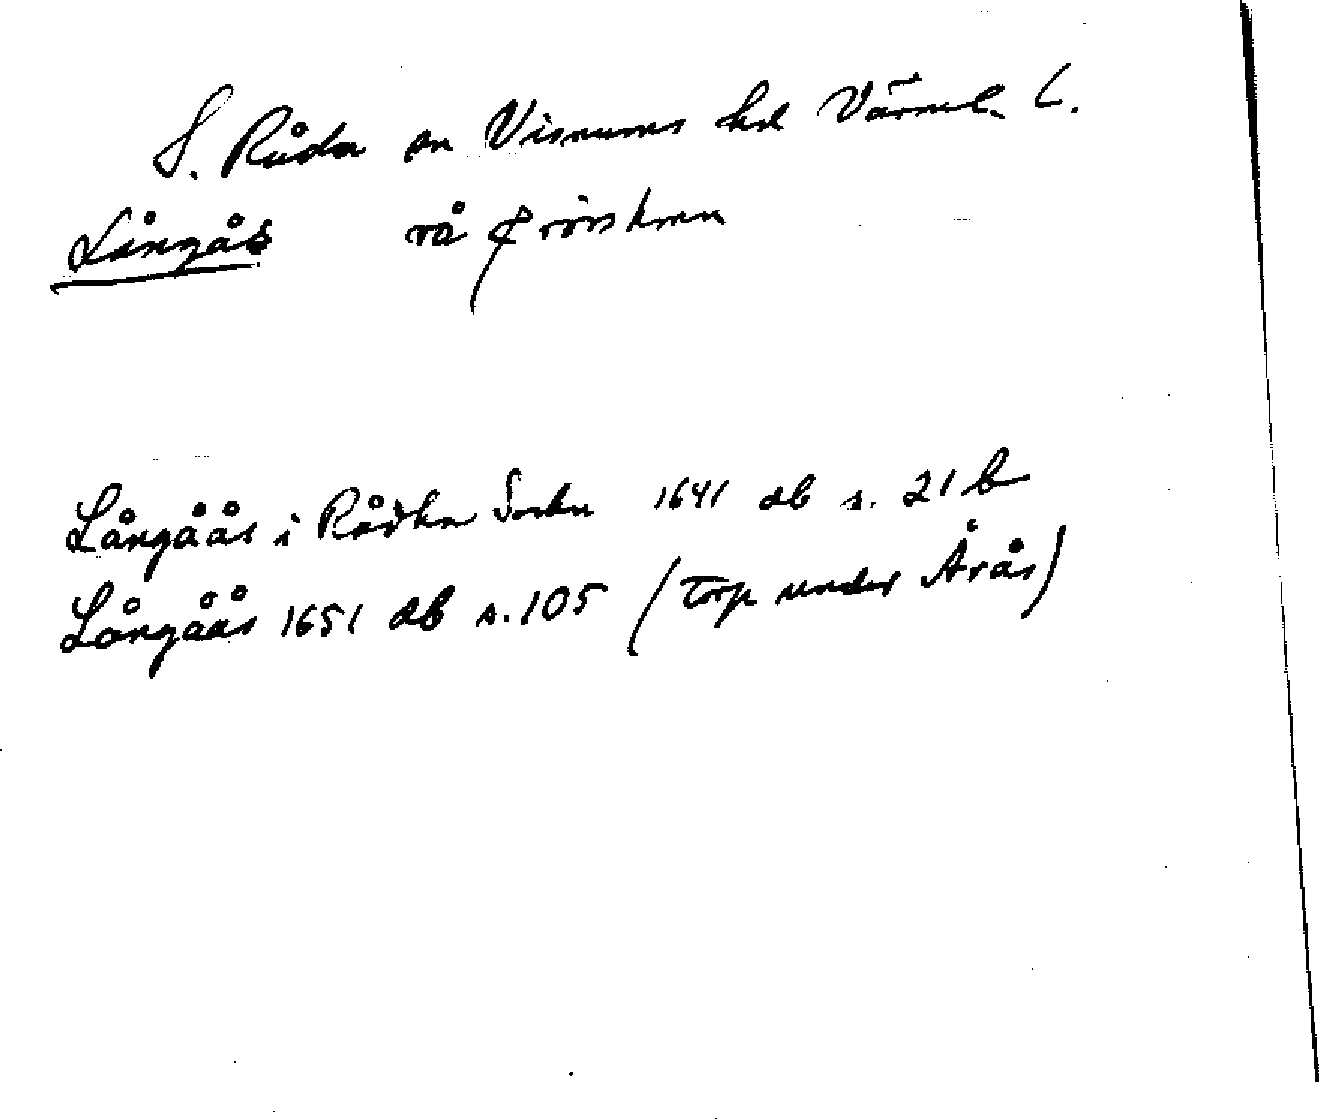 S. Råda sn Visnums hd Värml. l.
Långås rå & rörs kmn
Långåås i Rådha Sochn 1641 db s. 21 b
Långåås 1651 db s. 105 (torp under Årås)